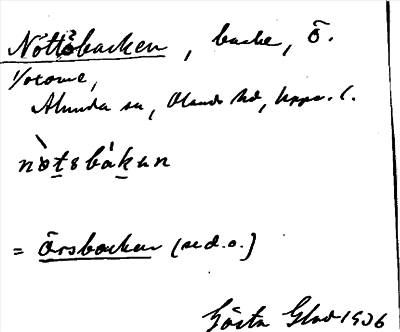 Nottöbacken, backe, Ö.
Yvcome,
Alunda sn, Olands hd, Upps. l.
nòtsbákan
= Örsbacken (se d. o.)
Gösta Glad 1936